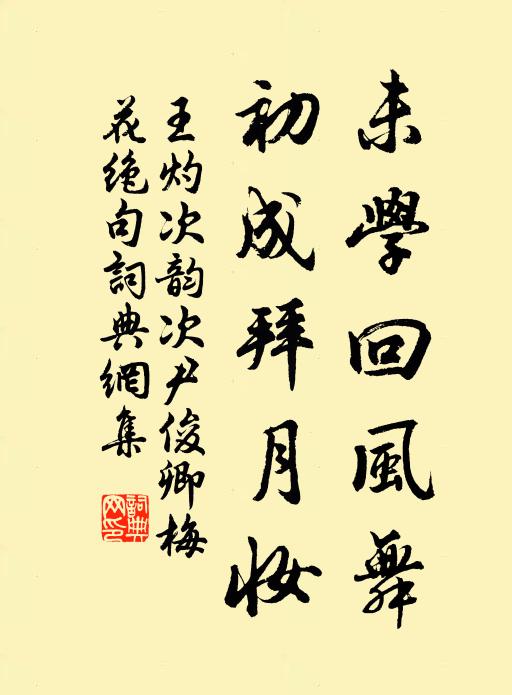 未學回風舞
初成拜月妝
王灼次韵次尹俊卿梅
花绝句詞典網集
詞典網印